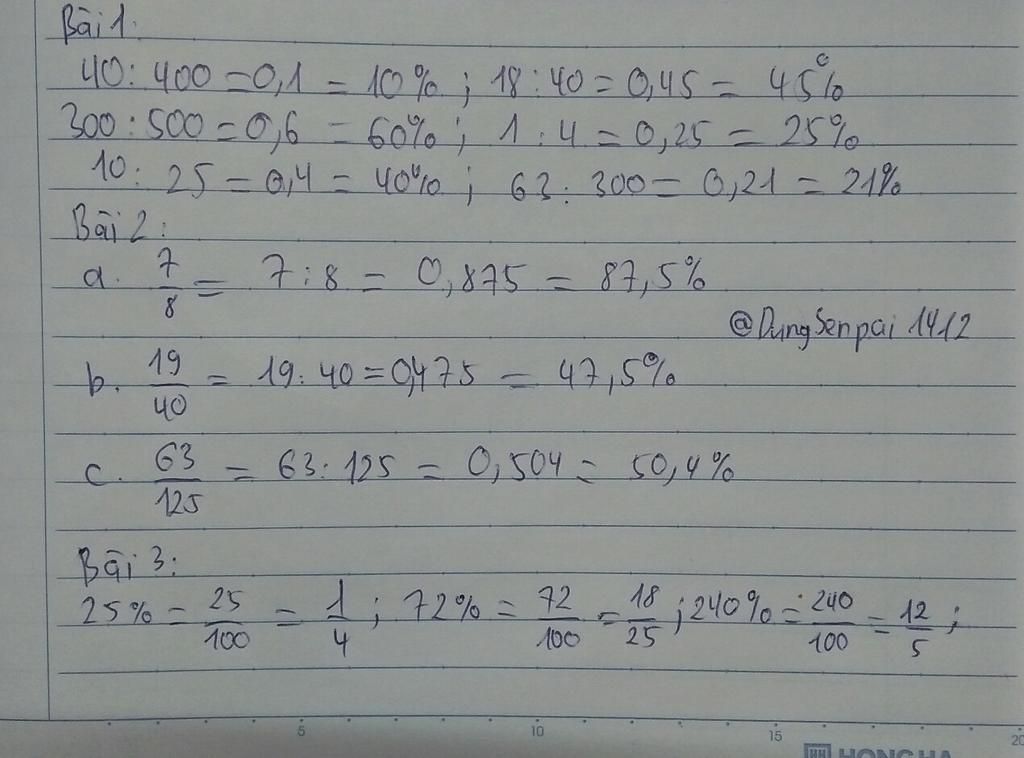 Bài 1.
40 : 400 = 0,1 = 10% ; 18 : 40 = 0,45 = 45%
300 : 500 = 0,6 = 60% ; 1 : 4 = 0,25 = 25%
10 : 25 = 0,4 = 40% ; 63 : 300 = 0,21 = 21%
Bài 2 :
a. 7/8 = 7 : 8 = 0,875 = 87,5%
@DungSenpai 1412
b. 19/40 = 19 : 40 = 0,475 = 47,5%
c. 63/125 = 63 : 125 = 0,504 = 50,4%
Bài 3 :
25% = 25/100 = 1/4 ; 72% = 72/100 = 18/25 ; 240% = 240/100 = 12/5 ;
5 10 15 20
HH HONG HA